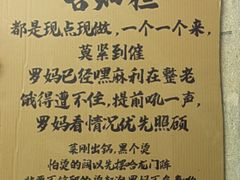 告知栏
都是现点现做，一个一个来，
莫紧到催
罗妈已经嘿麻利在整老
饿得遭不住，提前吼一声，
罗妈看情况优先照顾
菜刚出锅，黑个烫
怕烫的阔以先摆哈龙门阵